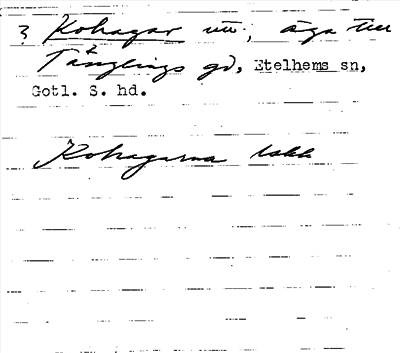 ? Kohagar utt; äga till
Tänglings gd, Etelhems sn,
Gotl. S. hd.
Kohagarna